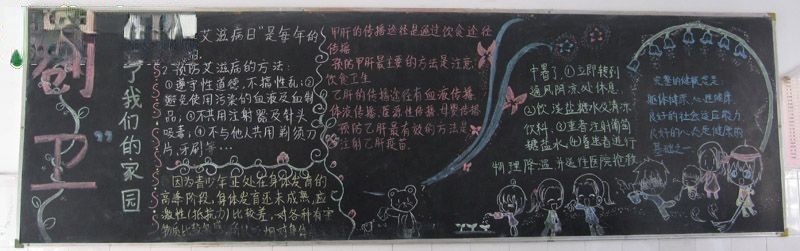 创
卫
"
了我们的家园
艾滋病日"是每年的
2.预防艾滋病的方法:
①遵守性道德,不搞性乱;②
避免使用污染的血液及血制
品;③不共用注射器及针头
吸毒;④不与他人共用剃须刀
片,牙刷等…
因为青少年正处在身体发育的
高峰阶段,身体发育还未成熟,应
激性(抵抗力)比较差,对各种有害
物质比较敏感
甲肝的传播途径是通过饮食途径
传播
预防甲肝最主要的方法是注意:
饮食卫生
乙肝的传播途径有血液传播.
体液传播.医源性传播.母婴传播
预防乙肝最有效的方法是
注射乙肝疫苗.
中暑了,①立即转到
通风阴凉处休息,
②饮淡盐糖水及清凉
饮料.③重者注射葡萄
糖盐水④昏迷者进行
物理降温并送往医院抢救
完整的健康概念是:
躯体健康、心理健康
良好的社会适应能力
良好的心态是健康的
基础之一